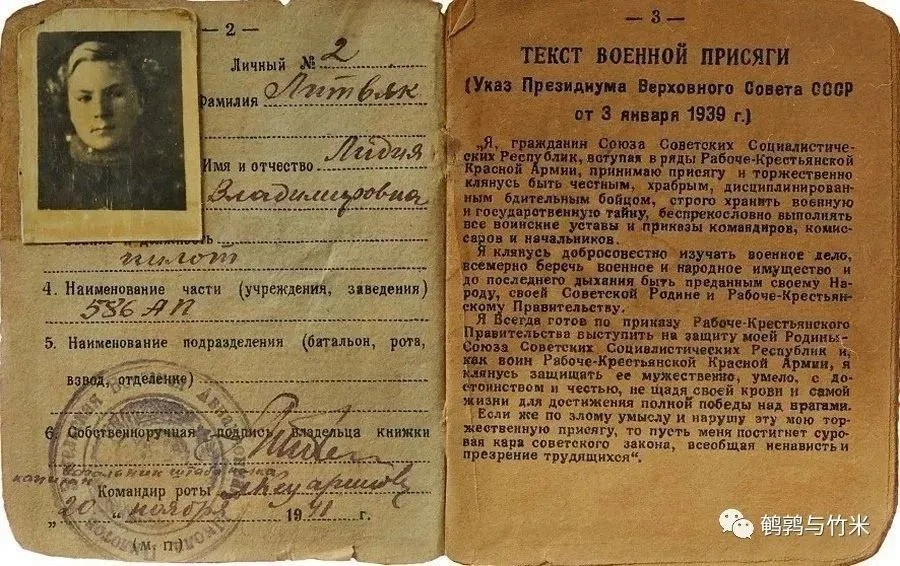 — 2 —
Личный № 2
Фамилия Литвяк
Имя и отчество Лидия
Владимировна
должность
пилот
4. Наименование части (учреждения, заведения)
586 АП
5. Наименование подразделения (батальон, рота,
взвод, отделение)
6. Собственноручная подпись владельца книжки
капитан начальник штаба полка
Командир роты
„20 “ ноября 1941 г.
(м. п.)
— 3 —
ТЕКСТ ВОЕННОЙ ПРИСЯГИ
(Указ Президиума Верховного Совета СССР
от 3 января 1939 г.)
„Я, гражданин Союза Советских Социалистиче-
ских Республик, вступая в ряды Рабоче-Крестьянской
Красной Армии, принимаю присягу и торжественно
клянусь быть честным, храбрым, дисциплинирован-
ным бдительным бойцом, строго хранить военную
и государственную тайну, беспрекословно выполнять
все воинские уставы и приказы командиров, комис-
саров и начальников.
Я клянусь добросовестно изучать военное дело,
всемерно беречь военное и народное имущество и
до последнего дыхания быть преданным своему На-
роду, своей Советской Родине и Рабоче-Крестьян-
скому Правительству.
Я всегда готов по приказу Рабоче-Крестьянского
Правительства выступить на защиту моей Родины-
Союза Советских Социалистических Республик и,
как воин Рабоче-Крестьянской Красной Армии, я
клянусь защищать ее мужественно, умело, с до-
стоинством и честью, не щадя своей крови и самой
жизни для достижения полной победы над врагами.
Если же по злому умыслу я нарушу эту мою тор-
жественную присягу, то пусть меня постигнет суро-
вая кара советского закона, всеобщая ненависть и
презрение трудящихся“.
鹌鹑与竹米